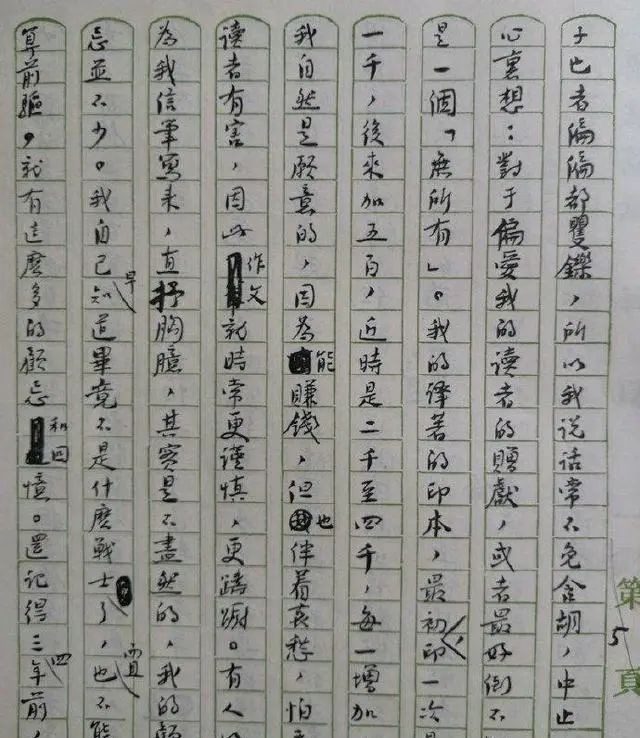 子也者偏偏都矍鑠，所以我说话常不免含胡，中止
心裏想：對于偏愛我的读者的贈獻，或者最好倒不
是一個「無所有」。我的译著的印本，最初印一次是
一千，後來加五百，近時是二千至四千，每一增加
我自然是願意的，因為能賺錢，但也伴着哀愁，怕
读者有害，因此作文就時常更谨慎，更踌躕。有人
為我信筆寫来，直抒胸臆，其實是不盡然的，我的顧
忌並不少。我自己早知道畢竟不是什麽戰士了，而且也不能
算前驅，就有這麽多的顧忌和回憶。還記得三四年前，
第5頁